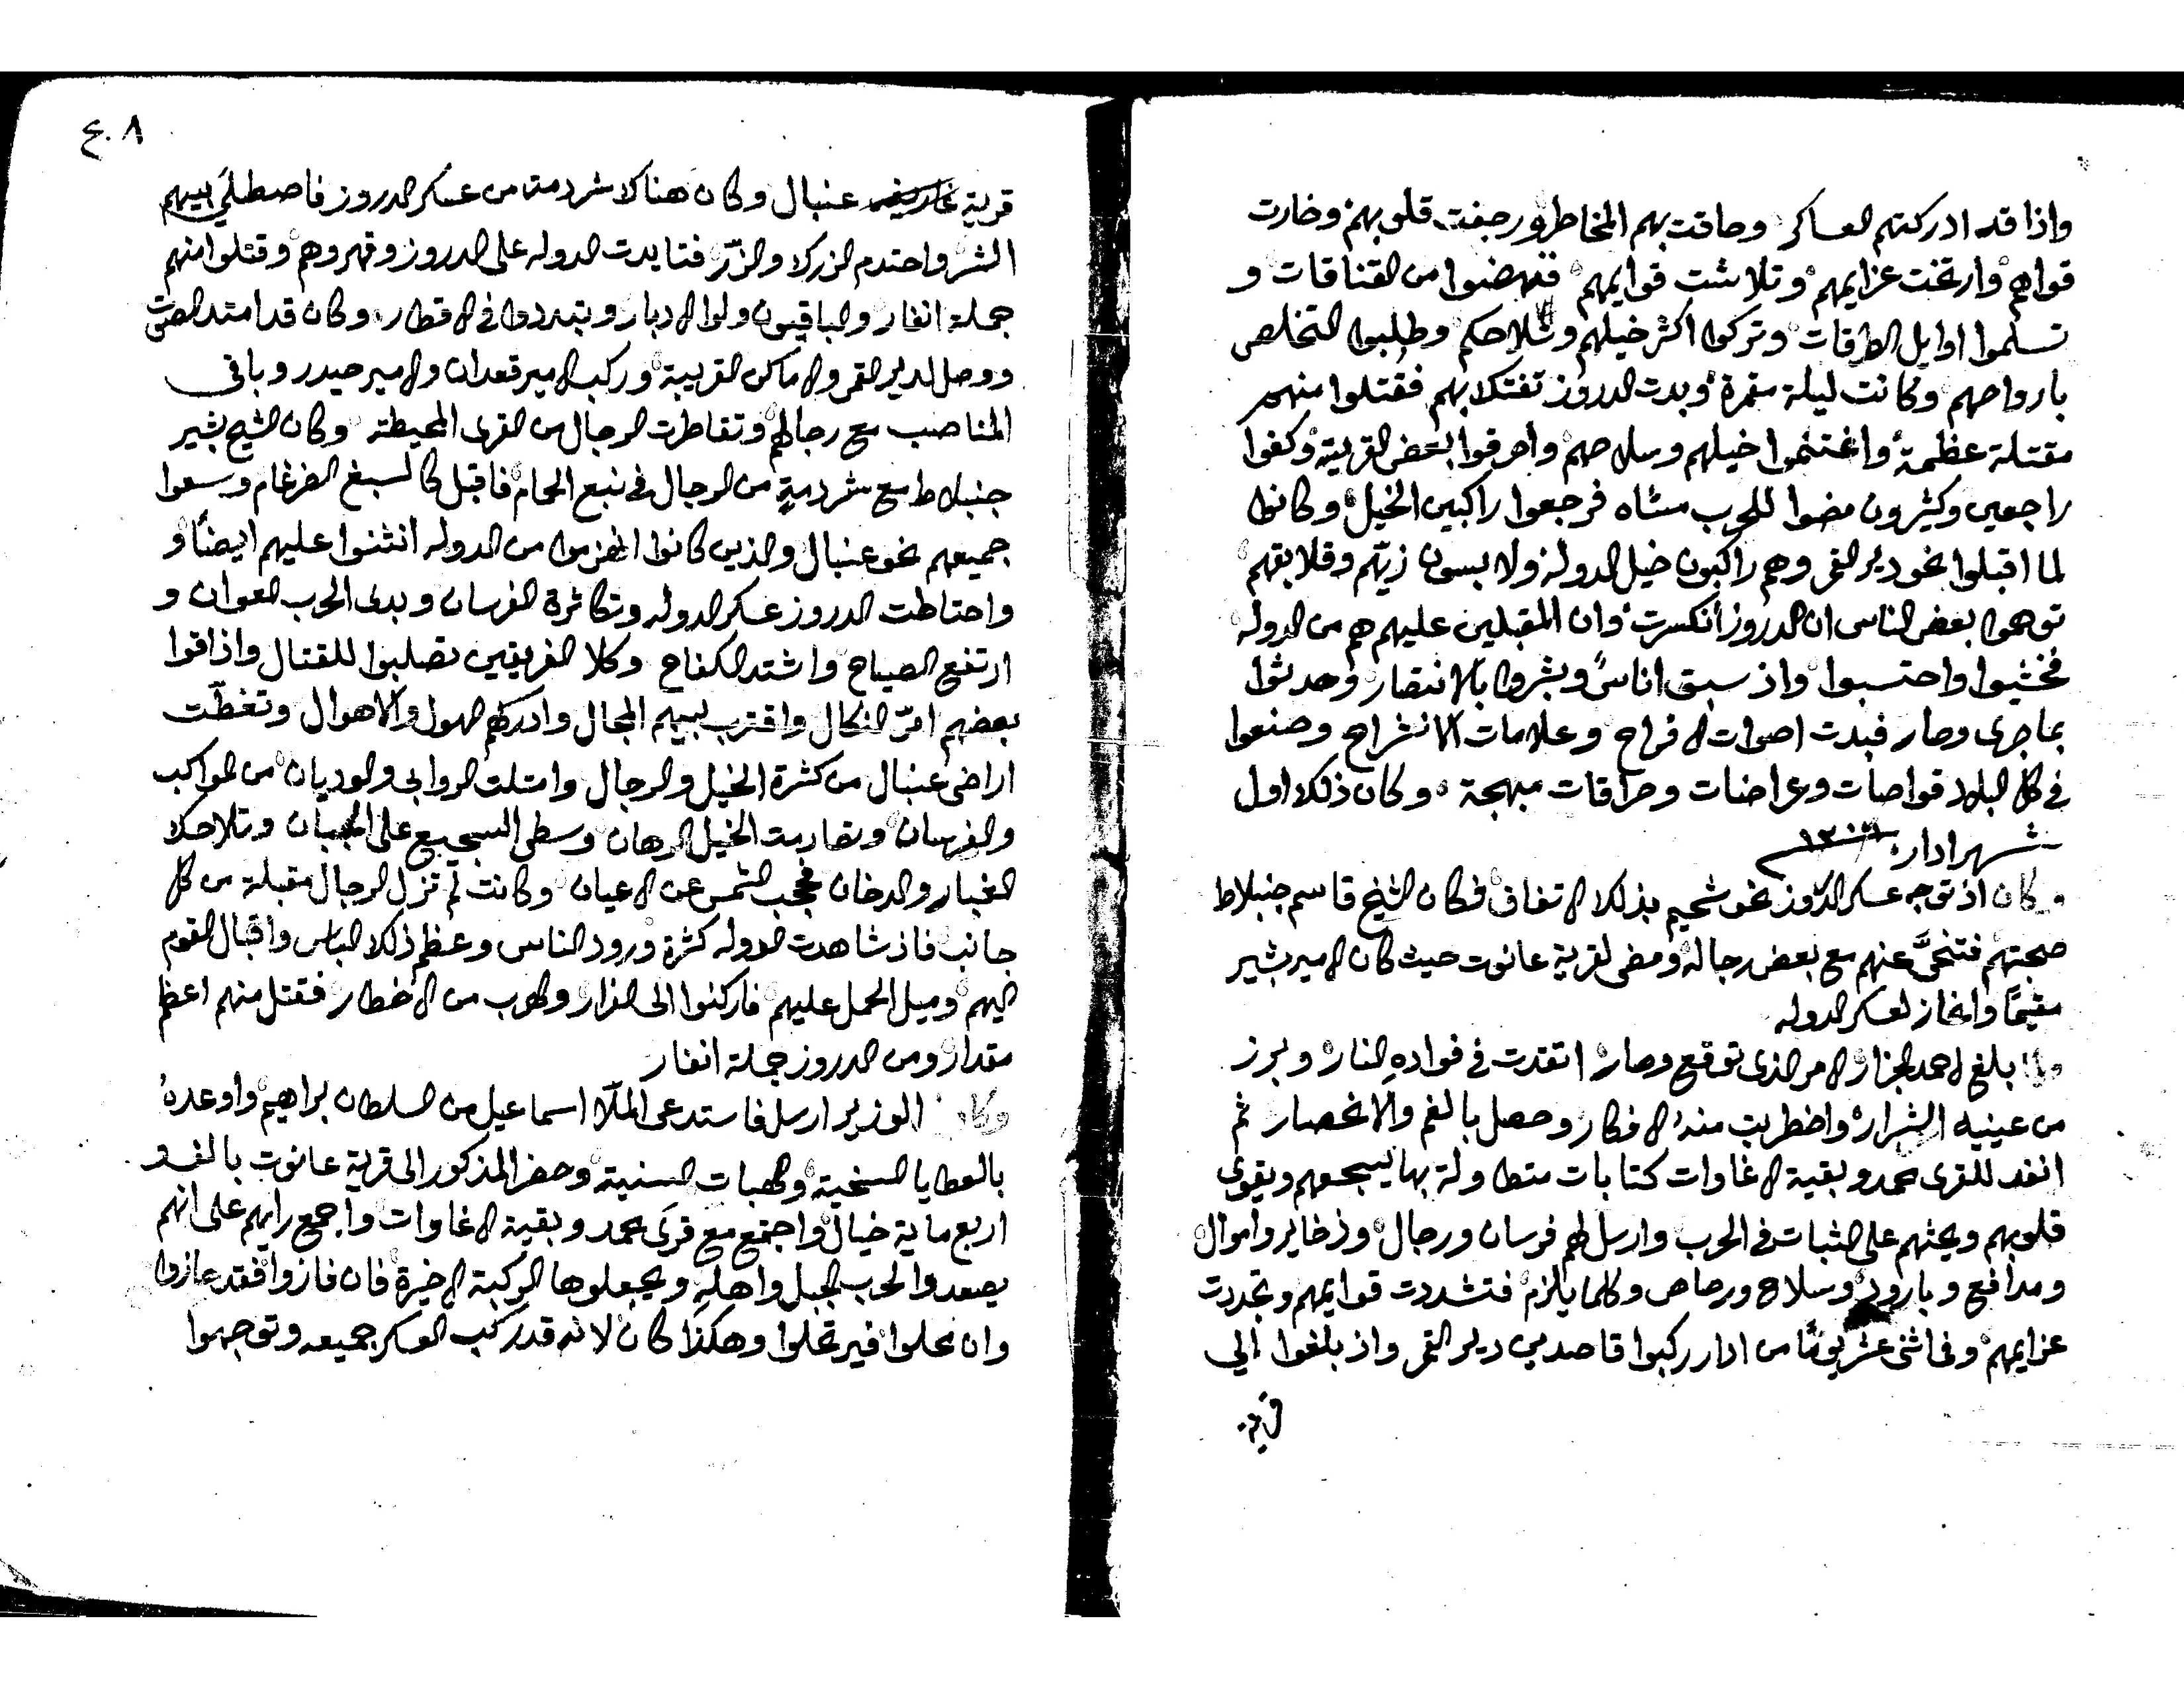 واذا قد ادركتهم العساكر وحاقت بهم المخاطر ورجفت قلوبهم وخارت
قواهم وارتخت عزايمهم وتلاشت قوايمهم فنهضوا من القناقات و
تسلموا اوايل الطرقات وتركوا اكثر خيلهم وسلاحكم وطلبوا التخلص
بارواحهم وكانت ليلة مقمرة وبدت الدروز تفتك بهم فقتلوا منهم
مقتلة عظمة واغتنموا خيلهم وسلاحهم واحرقوا بعض القرية وكفوا
راجعين وكثيرون مضوا للحرب مشاه فرجعوا راكبين الخيل وكانوا
لما اقبلوا نحو دير القمر وهم راكبون خيل الدوله ولابسون زيّهم وقلابقهم
توهموا بعض الناس ان الدروز انكسرت وان المقبلين عليهم هم من الدوله
فخشيوا واحتسبوا واذ سبق اناسً وبشروا بالانتصار وحدثوا
بما جرى وصار فبدت اصوات الافراح وعلامات الانشراح وصنعوا
في كل البلاد قواصات وعراضات وحراقات مبهجة وكان ذلك اول
شهر ادار
وكان اذ توجه عسكر الدروز نحو شحيم بذلك الاتفاق فكان الشيخ قاسم جنبلاط
صحبتهم فتنحَّى عنهم مع بعض رجاله ومضى لقرية عانوت حيث كان الامير بشير
مقيمًا وانحاز لعسكر الدوله
ولما بلغ لاحمد الجزار الامر الذي توقع وصار اتقدت في فواده النار وبرز
من عينيه الشرار واضطربت منه الافكار وحصل بالغم والانحصار ثم
انفد للقرى محمد وبقية الاغاوات كتابات متطاولة بها يسجعهم ويقوى
قلوبهم ويحثهم على الثبات في الحرب وارسل لهم فرسان ورجال وذخاير واموال
ومدافع وبارود وسلاح ورصاص وكلما يلزم فتشددت قوايمهم وتجددت
عزايمهم وفي اثنى عشر يومًا من ادار ركبوا قاصدين دير القمر واذ بلغوا الي
قرية
٤٠٨
قرية عنبال وكان هناك شردمة من عسكر الدروز فاصطلى بينهم
الشر واحتدم العرك والزّر فتايدت الدوله على الدروز وقهروهم وقتلوا منهم
جملة انفار والباقيون ولوا الادبار وتبددوا في الاقطار وكان قد امتد الصوت
ووصل لدير القمر والاماكن القريبة وركب الامير قعدان والامير حيدر وباقي
المناصب مع رجالهم وتقاطرت الرجال من القرى المحيطة وكان الشيخ بشير
جنبلاط مع شردمةٍ من الرجال في نبع الحام فاقبل كالسبع الضرغام وسعوا
جميعهم نحو عنبال والذين كانوا انهزموا من الدوله انثنوا عليهم ايضًا و
واحتاطت الدروز عسكر الدوله وتكاثرة الفرسان وبدى الحرب العوان و
ارتفع الصياح واشتد الكفاح وكلا الفريقين تصلبوا للقتال واذاقوا
بعضهم امرّ النكال واقترب بينهم المجال وادركهم الهول والاهوال وتغطّت
اراضى عنبال من كثرة الخيل والرجال وامتلت الروابي والوديان من المواكب
والفرسان وتصادمت الخيل الرهان وسطى السجيع على الجبان وتلاحك
الغبار والدخان فحجب الشمس عن الاعيان وكانت لم تزل الرجال مقبلة من كل
جانب فاذ شاهدت الدوله كثرة ورود الناس وعظم ذلك الباس واقبال القوم
اليهم وميل الحمل عليهم فاركنوا الى الفرار والهرب من الاخطار فقتل منهم اعظم
مقدار ومن الدروز جملة انفار
وكان الوزير ارسل فاستدعى الملّا اسماعيل من السلطان براهيم واوعده
بالعطايا السخية والهبات السنية وحضر المذكور الى قرية عانوت بالف و
اربع ماية خيال واجتمع مع قرى محمد وبقية الاغاوات واجمع رايهم على انهم
يصعدوا لحرب الجبل واهله ويجعلوها الركبة الاخيرة فان فازوا فقد عازوا
وان محلوا فيرتحلوا وهكذا كان لانه قد ركب العسكر جميعه وتوجهوا